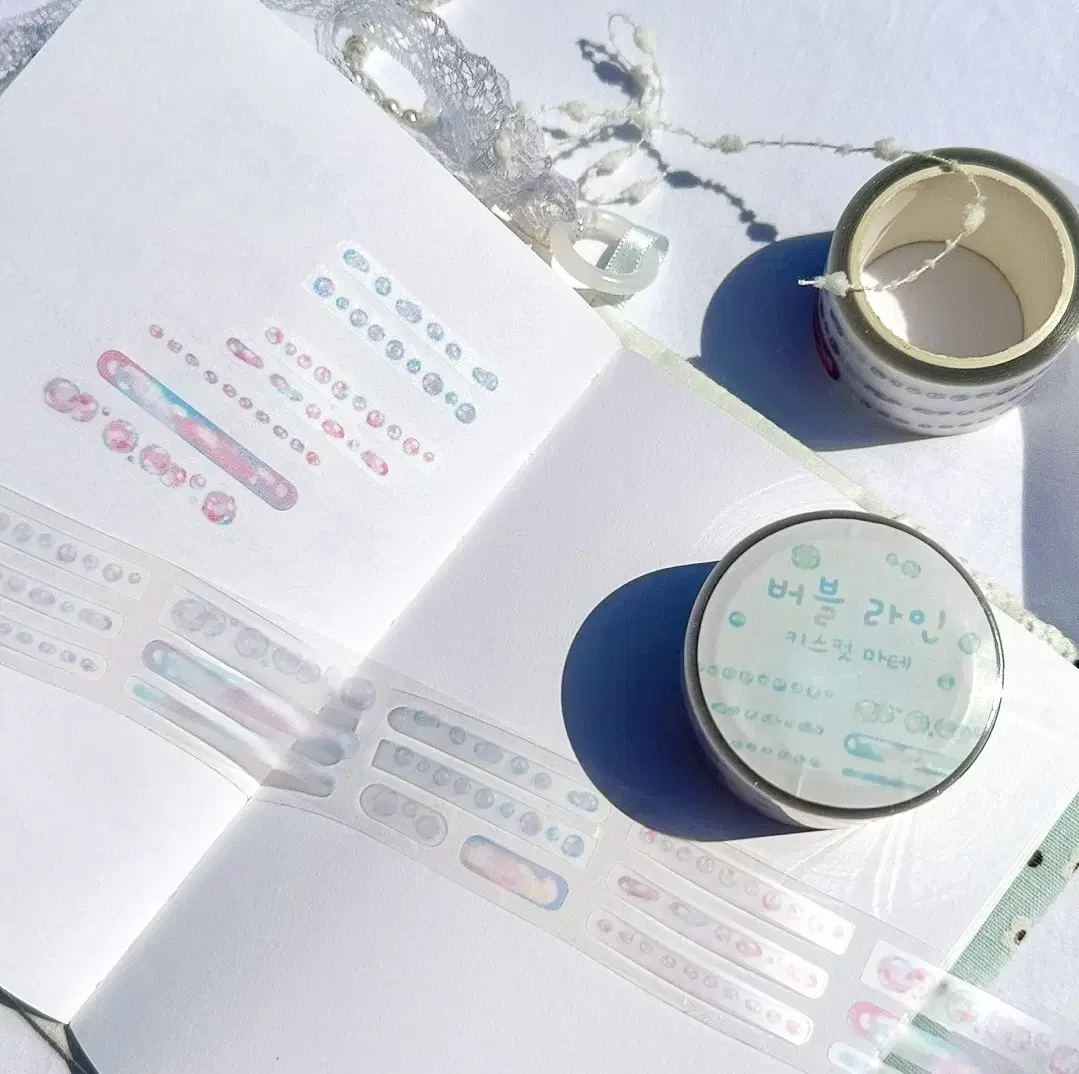 버블 라인
키스컷 마테